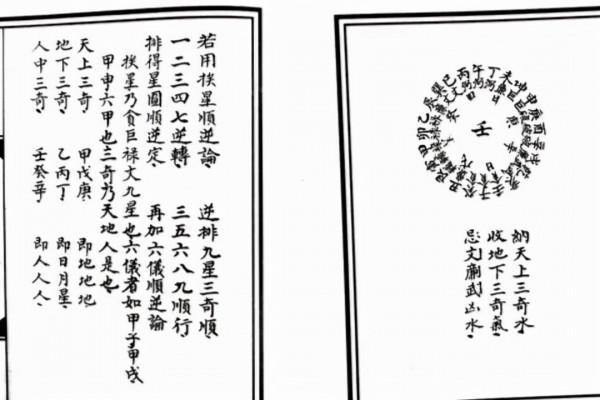 午丁未坤申庚酉辛戌乾亥壬子癸丑艮寅甲卯乙辰巽巳丙
壬
納天上三奇水
收地下三奇氣
忌文廉武凶水
若用挨星順逆論 逆排九星三奇順
一二三四七逆轉 三五六八九順行
排得星圖順逆定 再加六儀順逆論
挨星乃貪巨祿文九星也六儀者如甲子甲戌
甲申六甲也三奇乃天地人是也
天上三奇 甲戊庚 即地地地
地下三奇 乙丙丁 即日月星
人中三奇 壬癸辛 即人人人